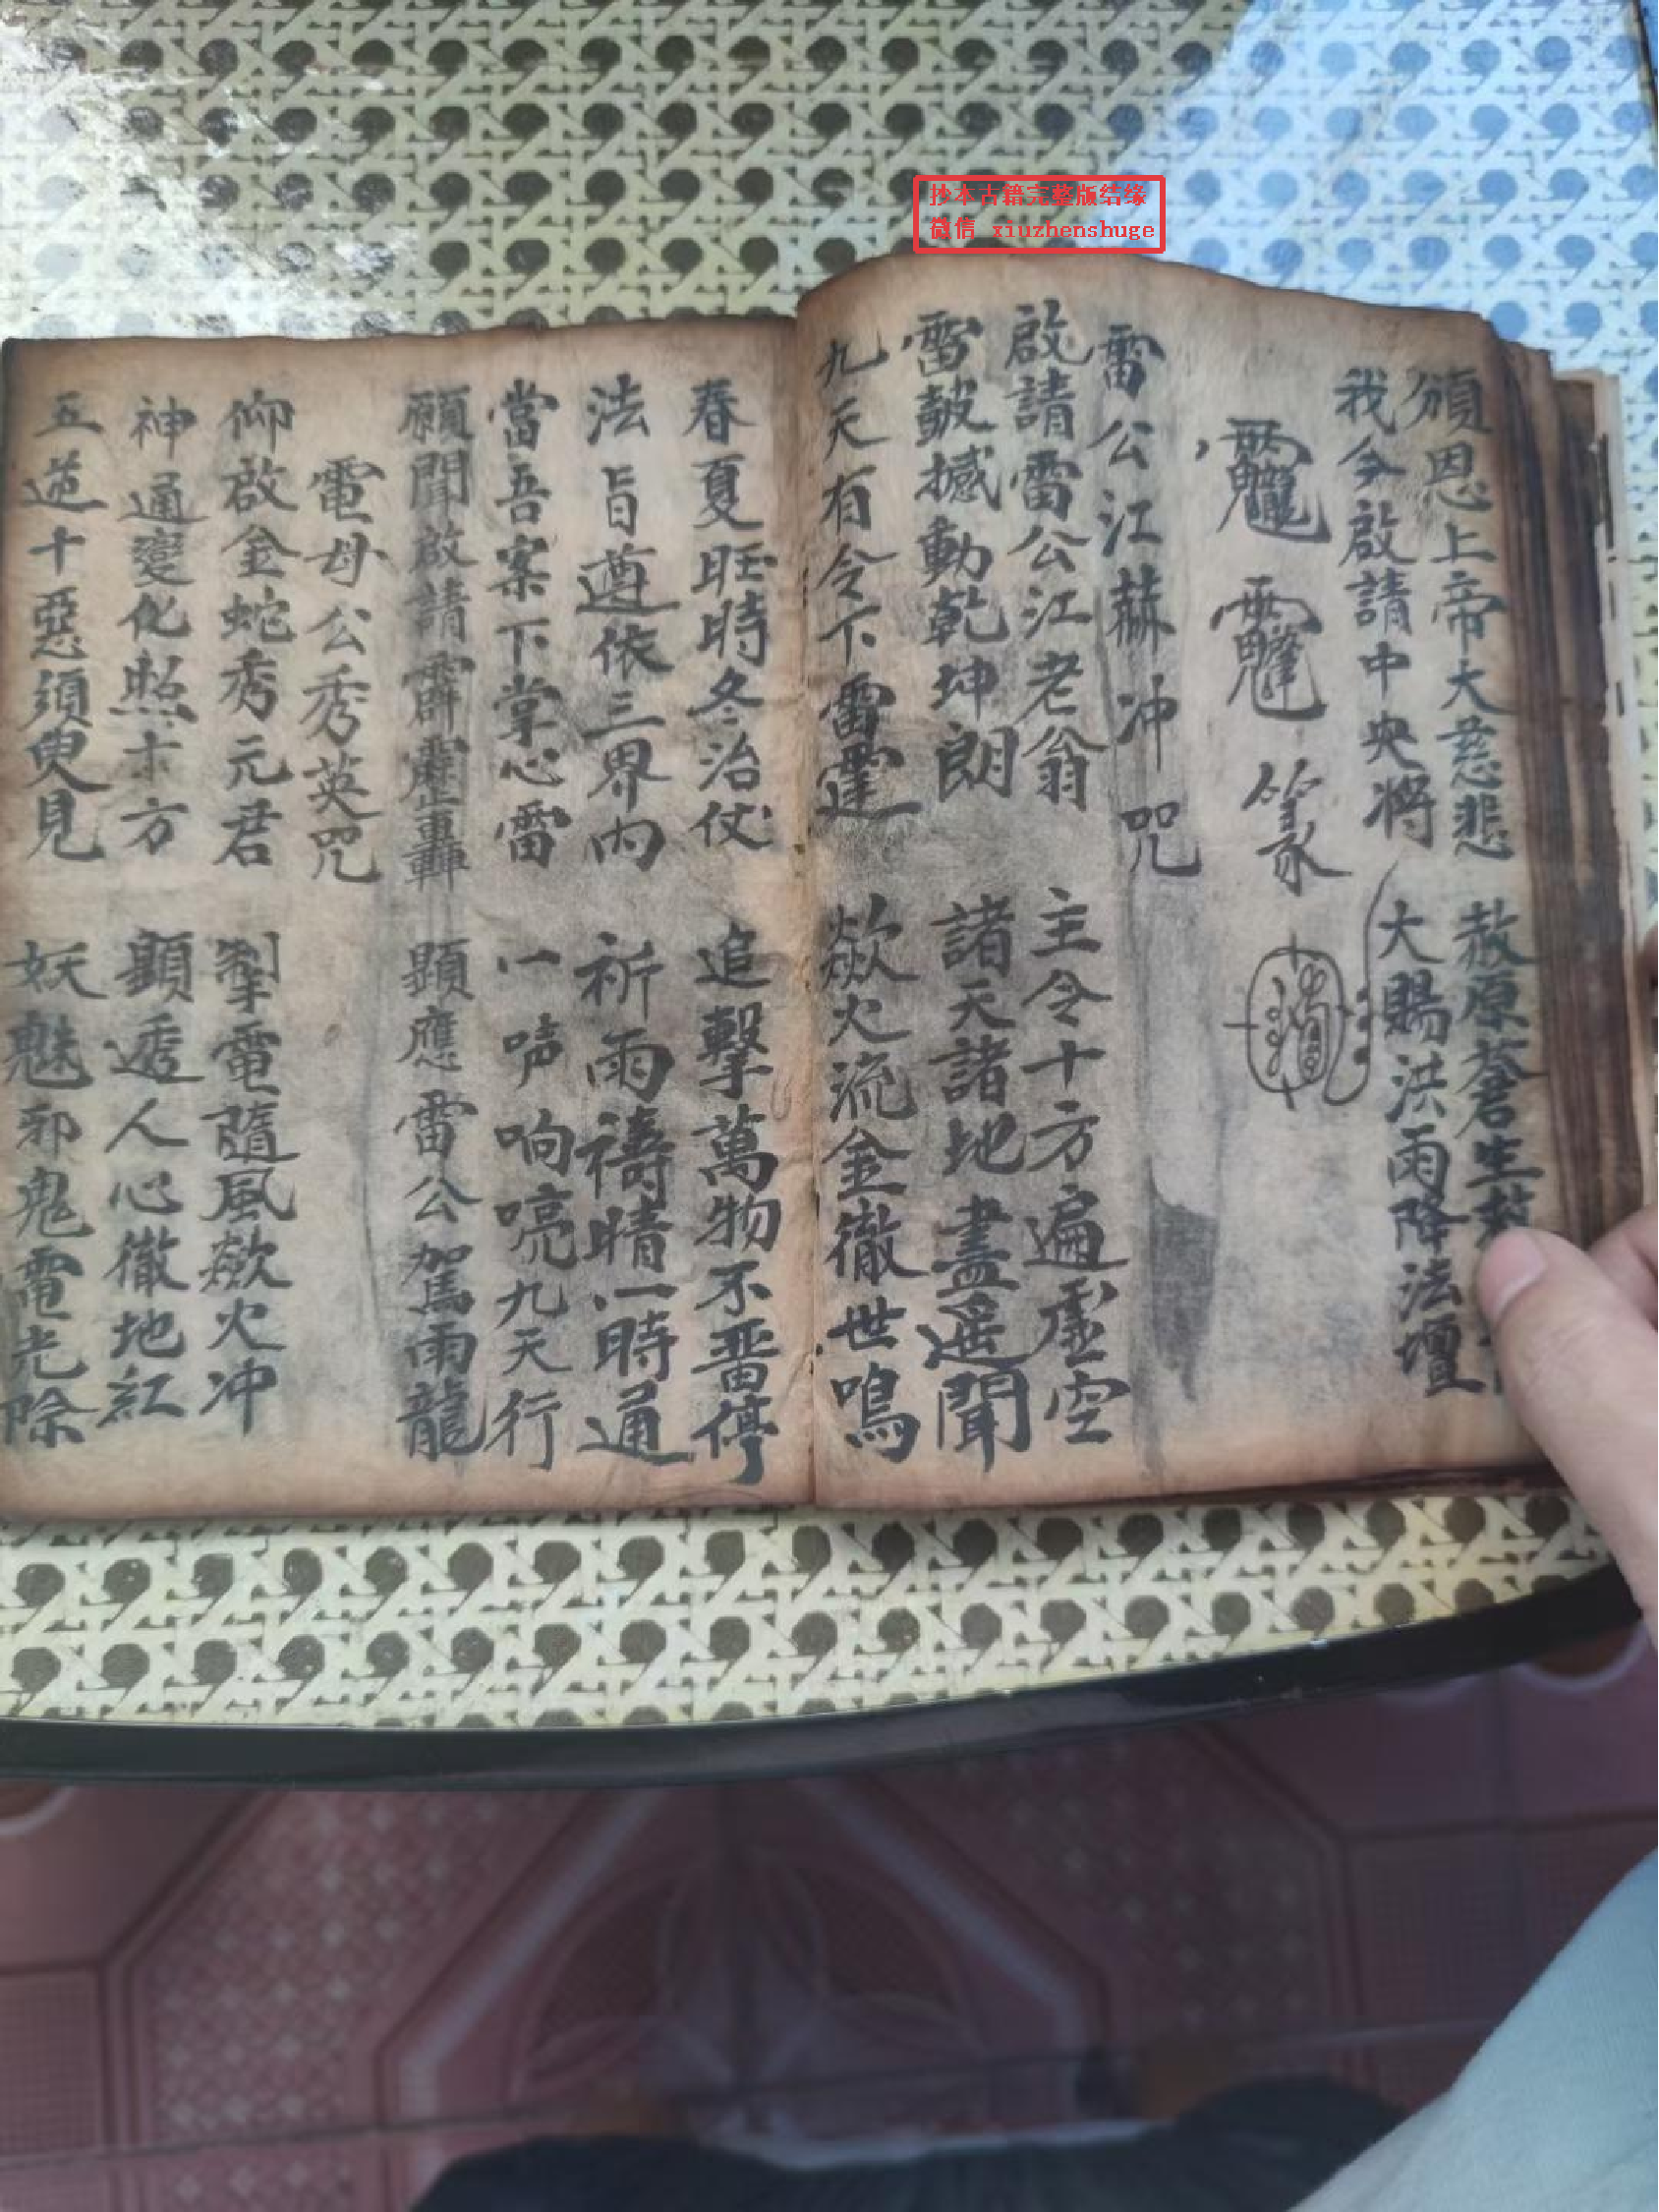 抄本古籍完整版结缘
微信 xiuzhenshuge
頒恩上帝大慈悲 赦原蒼生
我今啟請中央將 大賜洪雨降法壇
篆
雷公江赫冲咒
啟請雷公江老翁 主令十方遍虛空
雷皷撼動乾坤朗 諸天諸地盡遥聞
九天有令下雷霆 歘火流金徹世鳴
春夏旺時冬治伏 追擊萬物不畱停
法旨遵依三界内 祈雨禱晴一時通
當吾案下掌心雷 一声响喨九天行
願聞啟請霹靂轟 顕應雷公駕雨龍
電母公秀英咒
仰啟金蛇秀元君 掣電隨風歘火冲
神通變化照十方 顕透人心徹地紅
五逆十惡須臾見 妖魅邪鬼電光除